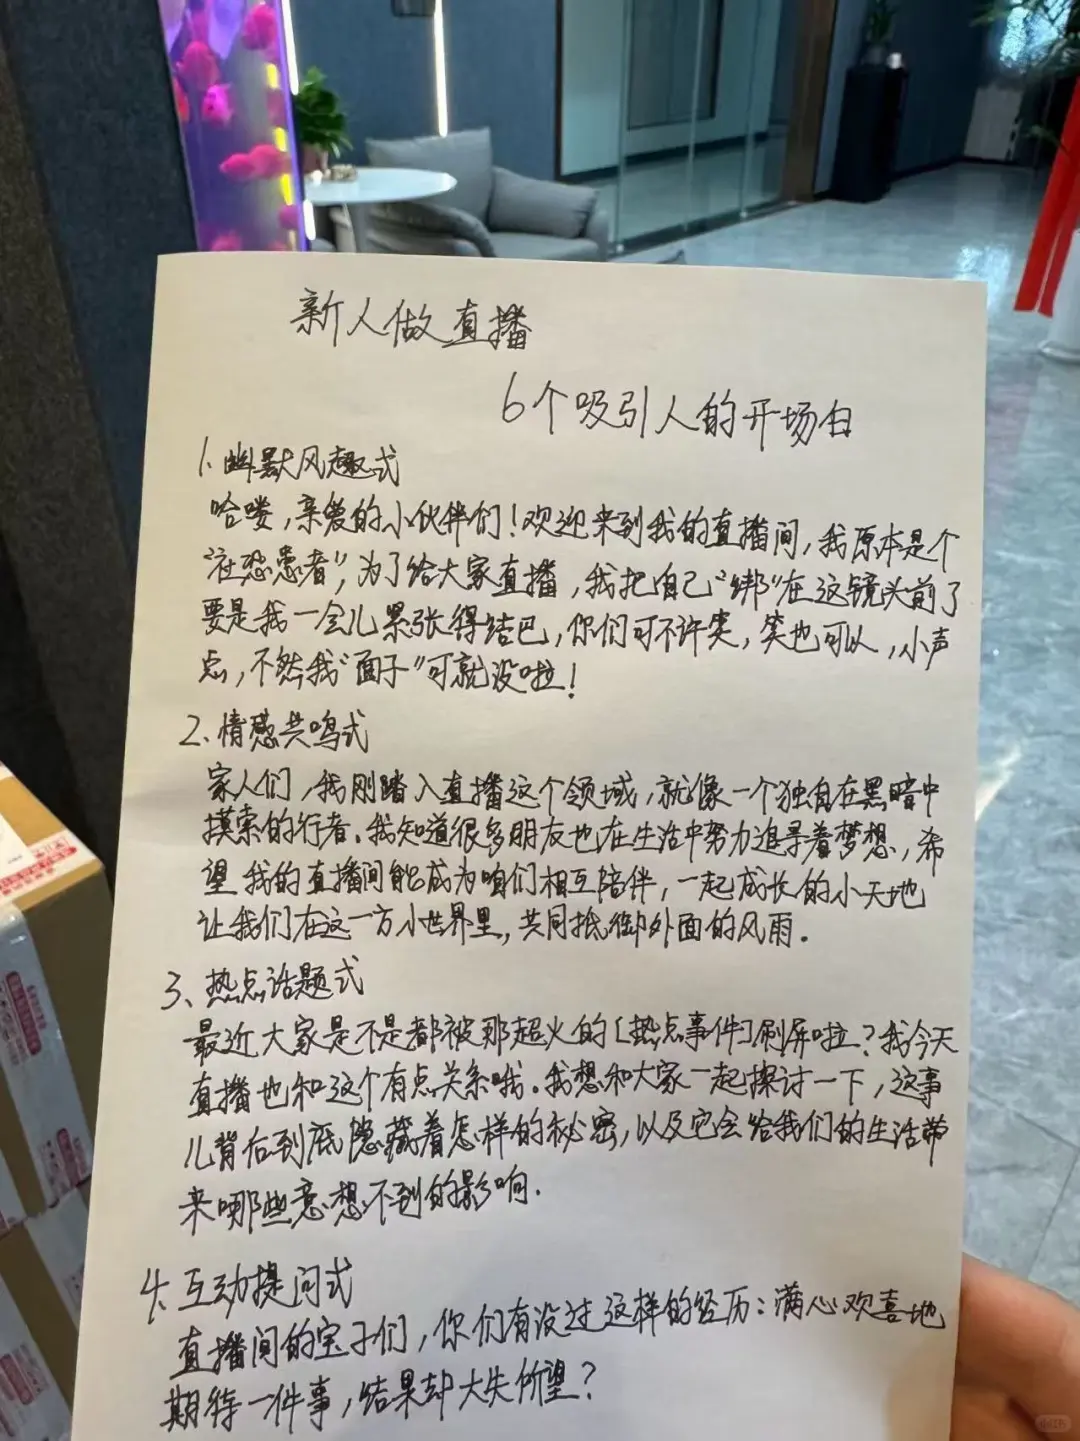 新人做直播
6个吸引人的开场白
1.幽默风趣式
哈喽,亲爱的小伙伴们!欢迎来到我的直播间,我原本是个
"社恐患者",为了给大家直播,我把自己"绑"在这镜头前了
要是我一会儿紧张得结巴,你们可不许笑,笑也可以,小声
点,不然我"面子"可就没啦!
2.情感共鸣式
家人们,我刚踏入直播这个领域,就像一个独自在黑暗中
摸索的行者.我知道很多朋友也在生活中努力追寻着梦想,希
望我的直播间能成为咱们相互陪伴,一起成长的小天地
让我们在这一方小世界里,共同抵御外面的风雨.
3、热点话题式
最近大家是不是都被那超火的[热点事件]刷屏啦?我今天
直播也和这个有点关系哦.我想和大家一起探讨一下,这事
儿背后到底隐藏着怎样的秘密,以及它会给我们的生活带
来哪些意想不到的影响.
4、互动提问式
直播间的宝子们,你们有没过这样的经历:满心欢喜地
期待一件事,结果却大失所望?